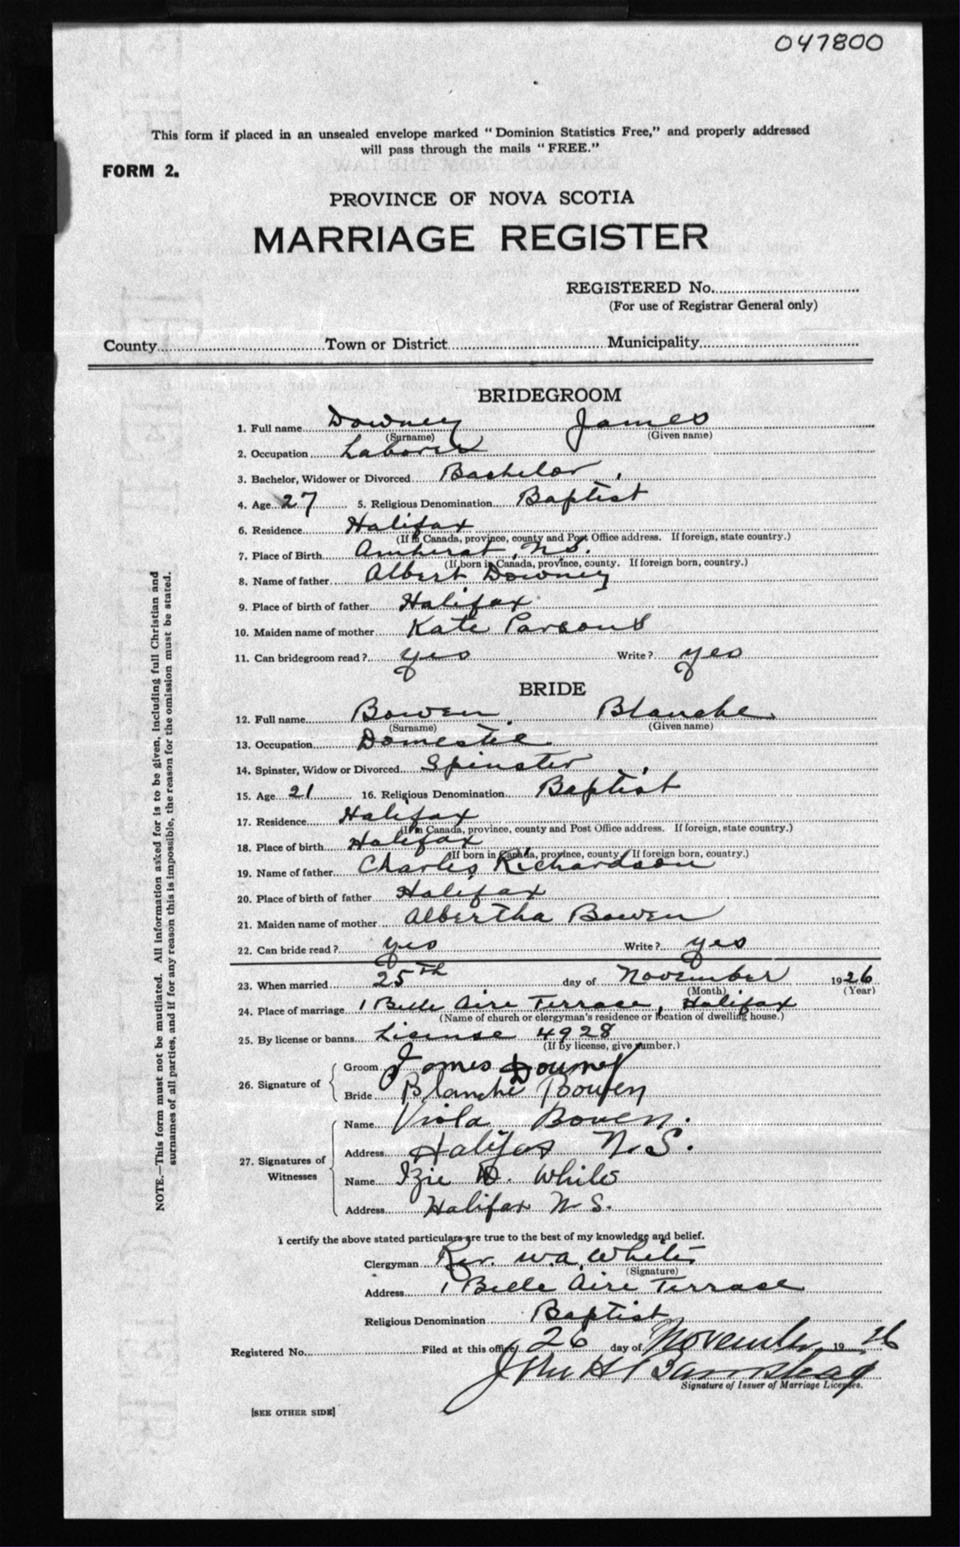 047800
This form if placed in an unsealed envelope marked "Dominion Statistics Free," and properly addressed
will pass through the mails "FREE."
FORM 2.
PROVINCE OF NOVA SCOTIA
MARRIAGE REGISTER
REGISTERED No.
(For use of Registrar General only)
County Town or District Municipality
BRIDEGROOM
1. Full name Downey James
(Surname) (Given name)
2. Occupation Laborer
3. Bachelor, Widower or Divorced Bachelor
4. Age 27 5. Religious Denomination Baptist
6. Residence Halifax
(If in Canada, province, county and Post Office address. If foreign, state country.)
7. Place of Birth Amherst, N.S.
(If born in Canada, province, county. If foreign born, country.)
8. Name of father Albert Downey
9. Place of birth of father Halifax
10. Maiden name of mother Kate Parsons
11. Can bridegroom read? yes Write? yes
BRIDE
12. Full name Bowen Blanche
(Surname) (Given name)
13. Occupation Domestic
14. Spinster, Widow or Divorced Spinster
15. Age 21 16. Religious Denomination Baptist
17. Residence Halifax
(If in Canada, province, county and Post Office address. If foreign, state country.)
18. Place of birth Halifax
(If born in Canada, province, county. If foreign born, country.)
19. Name of father Charles Richardson
20. Place of birth of father Halifax
21. Maiden name of mother Albertha Bowen
22. Can bride read? yes Write? yes
23. When married 25th day of November 1926
(Month) (Year)
24. Place of marriage 1 Belle Aire Terrace, Halifax
(Name of church or clergyman's residence or location of dwelling house.)
25. By license or banns License 4928
(If by license, give number.)
26. Signature of
Groom James Downey
Bride Blanche Bowen
27. Signatures of Witnesses
Name Viola Bowen.
Address Halifax N.S.
Name Izie D. White
Address Halifax N S.
I certify the above stated particulars are true to the best of my knowledge and belief.
Clergyman Rev. W.A. White
(Signature)
Address 1 Belle Aire Terrace
Religious Denomination Baptist
Registered No. Filed at this office 26 day of November 1926
John H Barnstead
Signature of Issuer of Marriage Licenses.
[SEE OTHER SIDE]
NOTE.—This form must not be mutilated. All information asked for is to be given, including full Christian and
surnames of all parties, and if for any reason this is impossible, the reason for the omission must be stated.